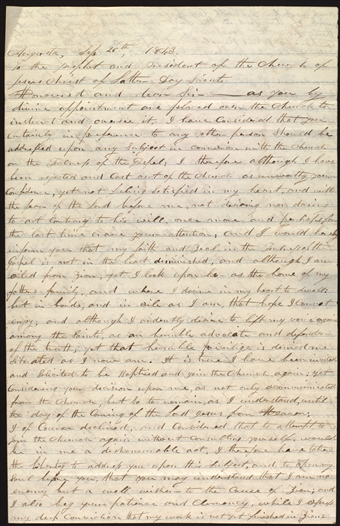 Augusta, Sep. 25th 1843.
To the prophet and President of the Church of
Jesus Christ of Latter Day Saints
Honoured and dear Sir — as you by
divine appointment are placed over the Church to
instruct and oversee it, I have considered that you
entirely in preference to any other person should be
addressed upon any subject in connexion with the Church
or the Fulness of the Gospel, I therefore although I have
been rejected and Cast out of the Church as unworthy your
Confidence, yet not feeling satisfied in my heart, and with
the fear of the Lord before me, not desiring nor daring
to act contrary to his will, once more and perhaps for
the last time crave your attention, and I would
inform you that my faith and zeal in the
Gospel is not in the least diminished, and although I am
exiled from Zion, yet I look upon her as the home of my
father's family, and where I desire in my heart to dwell
but in bonds, and in exile as I am, that hope I cannot
enjoy; and although I ardently desire to lift my voice again
among the Saints, as an humble advocate and defender
of the truth, yet that favorable privilege is denied me
situated as I now am. It is true I have been invited
and solicited to be Baptised and join the Church again, yet
considering your decision upon me, as not only excommunicated
from the Church, but so to remain, as I understand, until
the day of the Coming of the Lord Jesus from Heaven;
I of Course declined, and Considered that to attempt to
join the Church again without Consulting yourself, would
be in me a dishonourable act, I therefore have taken
the liberty to address you upon this subject, and to
but before you, that you may understand that I am no
enemy but a well wisher to the Cause of Zion, and
I also beg your patience and Clemency while I express
my deep Conviction that my work is not yet finished in Zion